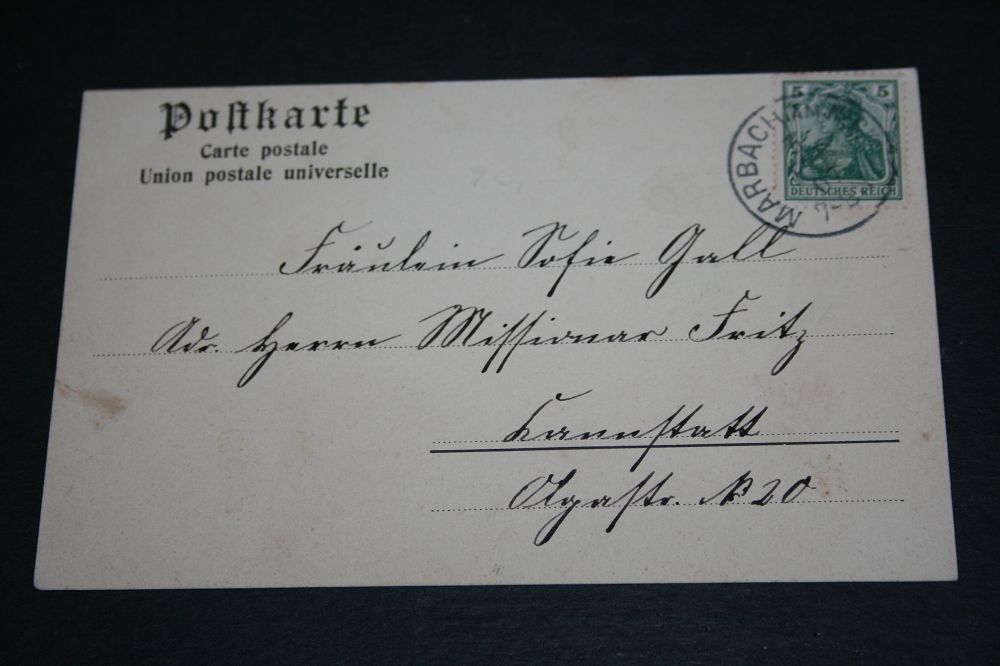 Postkarte
Carte postale
Union postale universelle
5 5
DEUTSCHES REICH
MARBACH (AM
7-8
Fräulein Sofie Gall
Adr. Herrn Missionar Fritz
Kannstatt
Olgastr. No 20